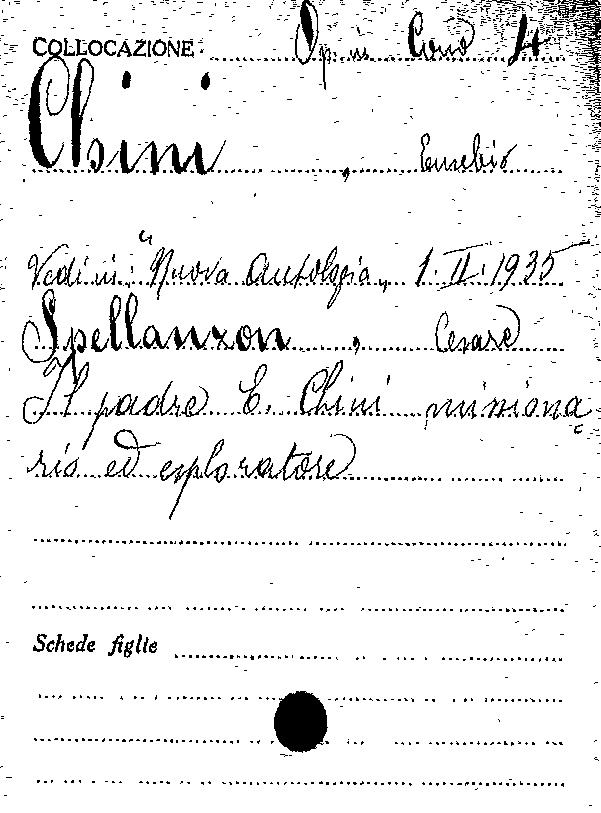 COLLOCAZIONE Op. in Cons 4
Chini, Eusebio
Vedi in: "Nuova Antologia" 1. II. 1935
Spellanzon, Cesare
Il padre E. Chini missiona
rio ed esploratore
Schede figlie